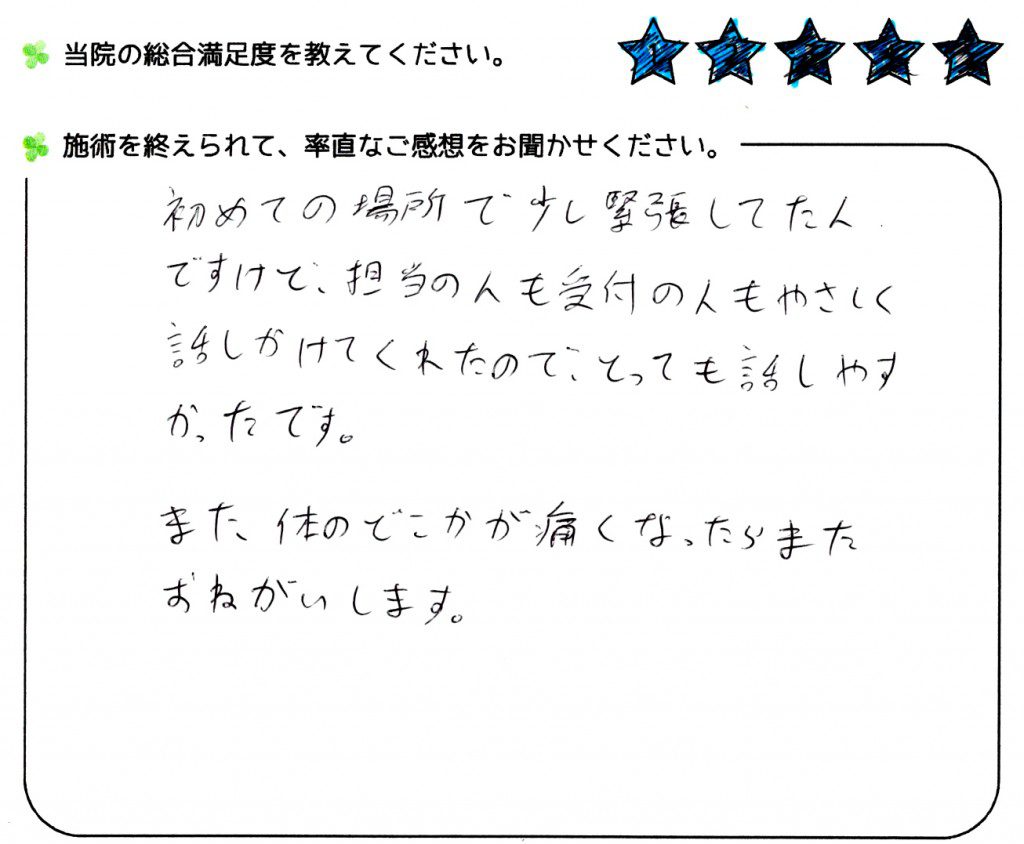 当院の総合満足度を教えてください。
施術を終えられて、率直なご感想をお聞かせください。
初めての場所で少し緊張してたん
ですけど、担当の人も受付の人もやさしく
話しかけてくれたので、とっても話しやす
かったです。
また、体のどこかが痛くなったらまた
おねがいします。